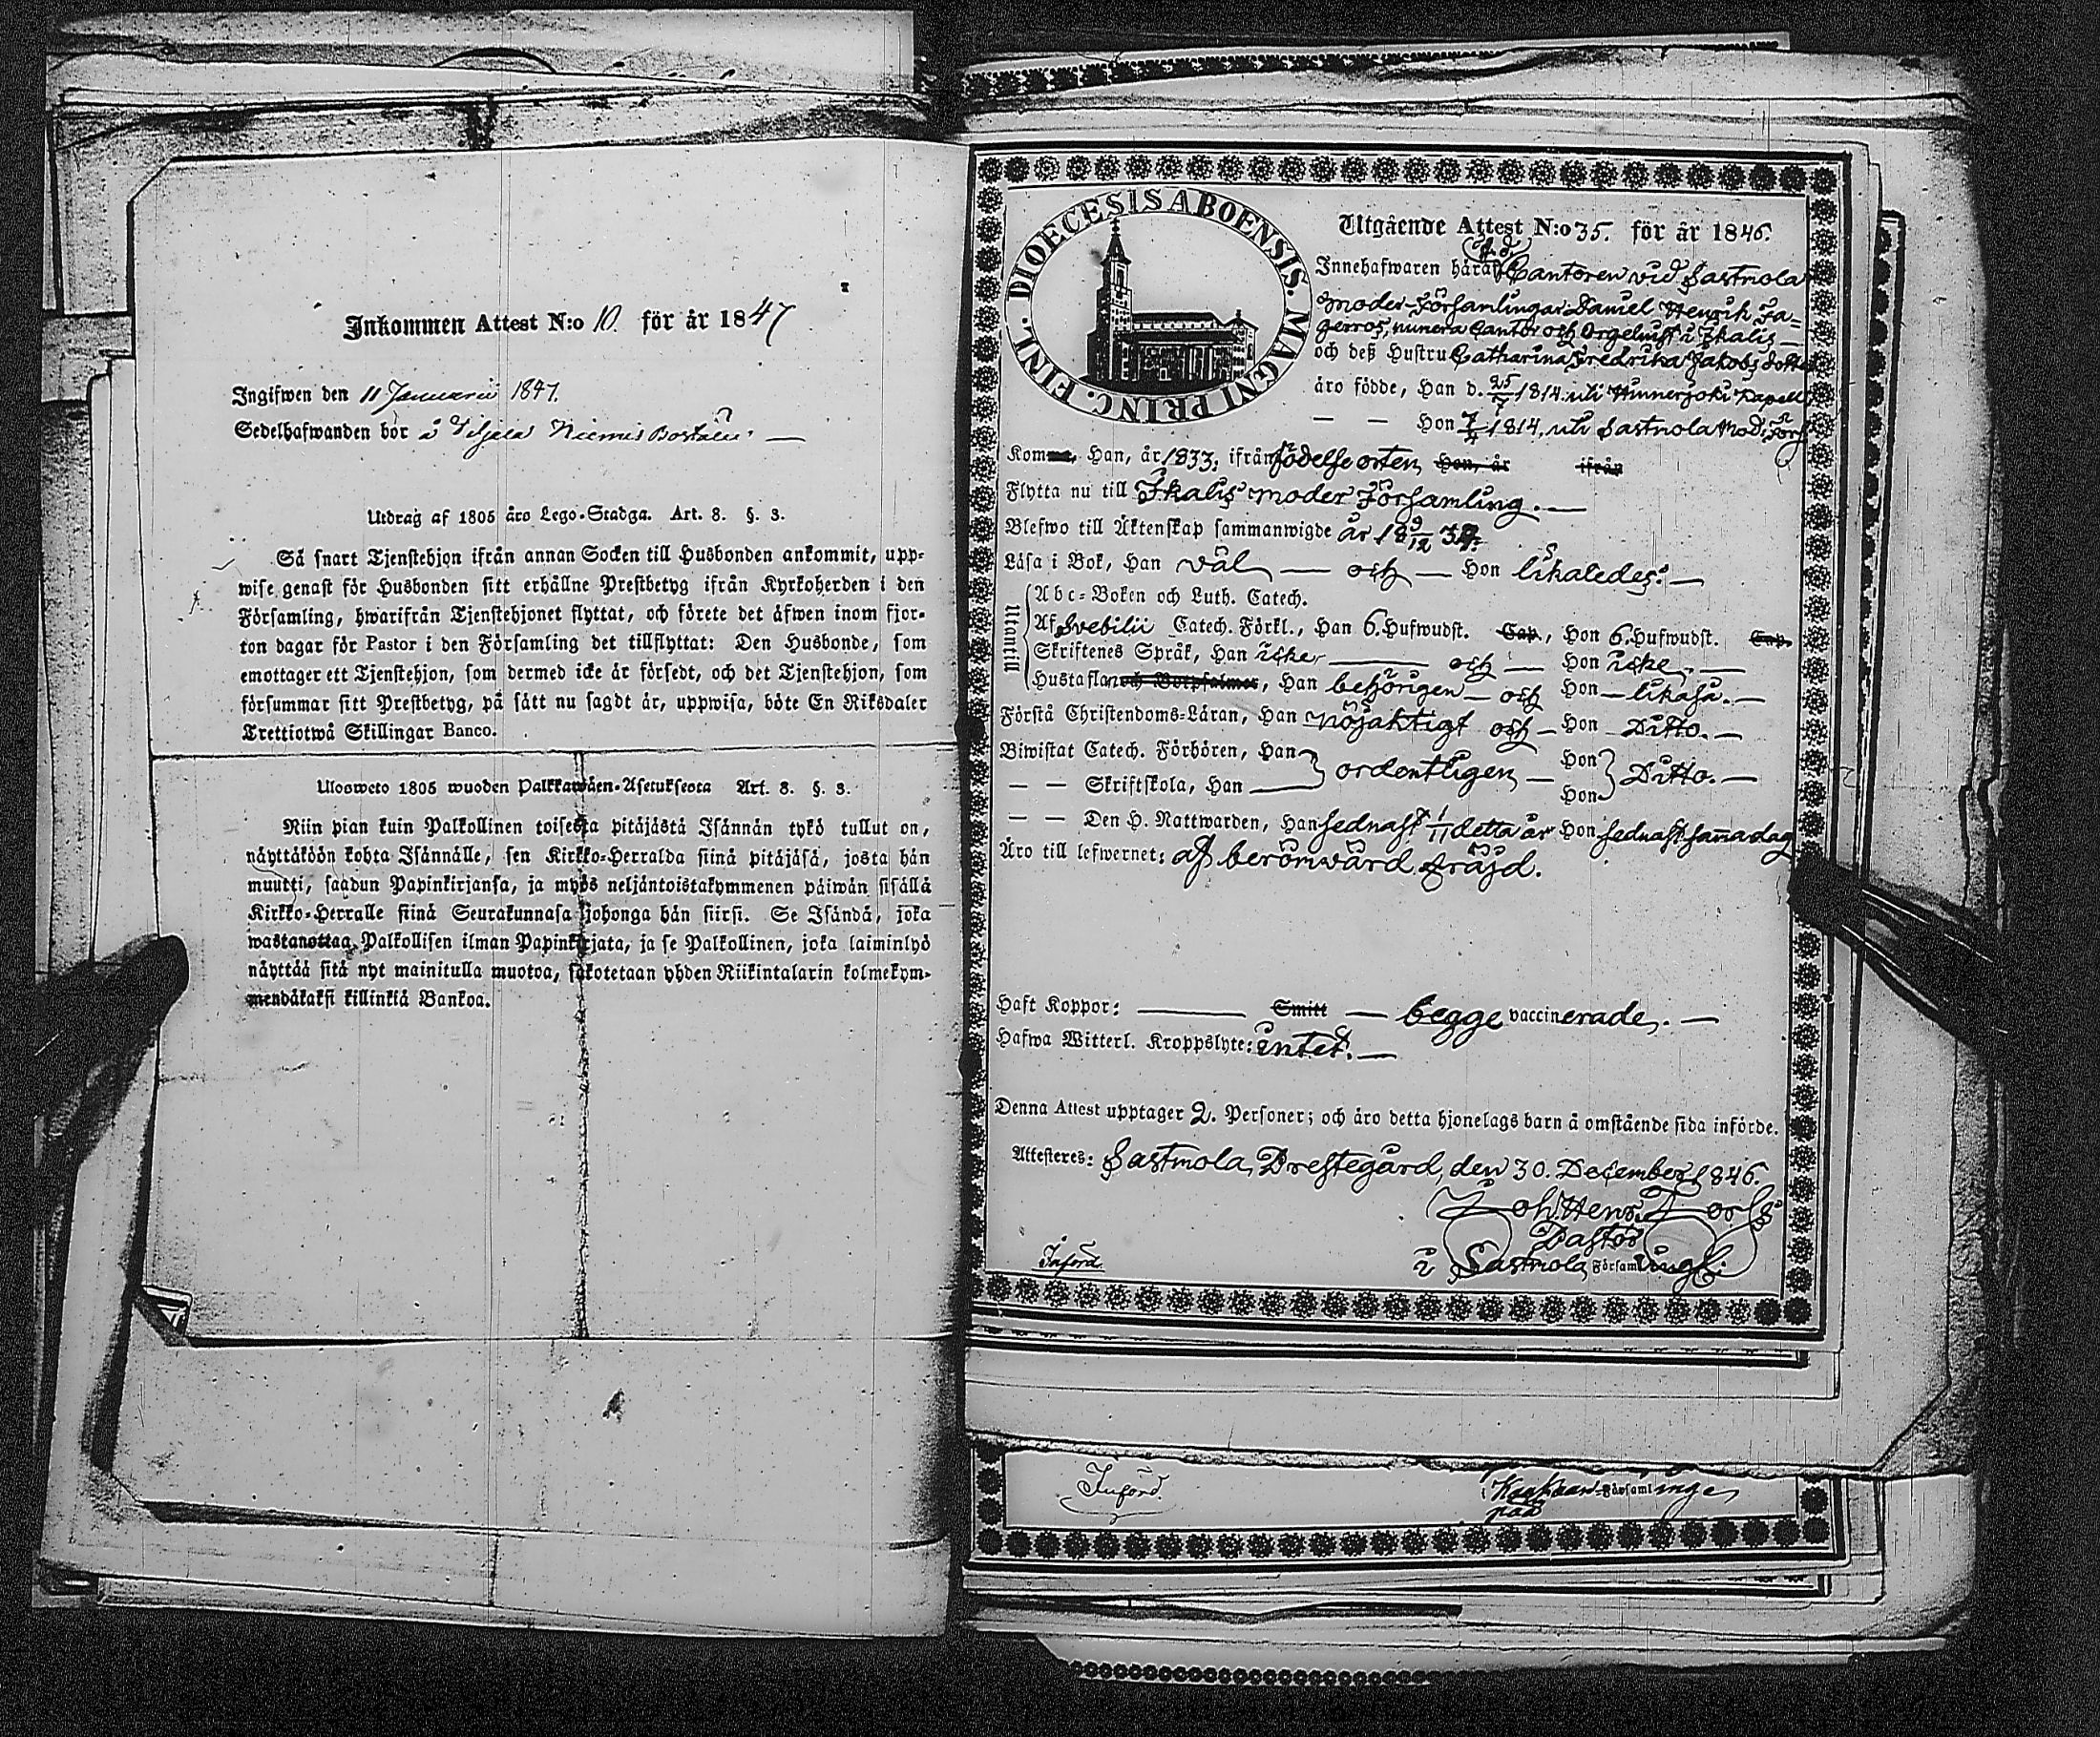 Inkommen Attest N:o 10. för år 1847
Ingifwen den 11 Januarii 1847.
Sedelhafwanden bor å Viljala Niemis Boställe. —
Utdrag af 1805 års Lego-Stadga. Art. 8. §. 3.
Så snart Tjenstehjon ifrån annan Socken till Husbonden ankommit, upp-
wise genast för Husbonden sitt erhållne Prestbetyg ifrån Kyrkoherden i den
Församling, hwarifrån Tjenstehjonet flyttat, och förete det äfwen inom fjor-
ton dagar för Pastor i den Församling det tillflyttat: Den Husbonde, som
emottager ett Tjenstehjon, som dermed icke är försedt, och det Tjenstehjon, som
försummar sitt Prestbetyg, på sätt nu sagdt är, uppwisa, böte En Riksdaler
Trettiotwå Skillingar Banco.
Ulosweto 1805 wuoden Palkkawäen-Asetuksesta Art. 8. §. 3.
Niin pian kuin Palkollinen toisesta pitäjästä Isännän tykö tullut on,
näyttäköön kohta Isännälle, sen Kirkko-Herralda siinä pitäjäsä, josta hän
muutti, saadun Papinkirjansa, ja myös neljäntoistakymmenen päiwän sisällä
Kirkko-Herralle siinä Seurakunnasa johonga hän siirsi. Se Isändä, joka
wastanottaa Palkollisen ilman Papinkirjata, ja se Palkollinen, joka laiminlyö
näyttää sitä nyt mainitulla muotoa, sakotetaan yhden Riikintalarin kolmekym-
mendäkaksi killinkiä Bankoa.
DIOECESIS ABOENSIS. MAGNI PRINC. FINL.
Utgående Attest N:o 35. för år 1846.
Innehafwaren häraf Cantoren vid Sastmola
Moder-Församlingar Daniel Henrik Fa-
gerros, numera Cantor och Orgelnist i Ikalis —
och deß Hustru Catharina Fredrika Jakobsdotter
äro födde, Han d. 25/7 1814. uti Hinnerjoki Capell
— — Hon 7/4 1814, uti Sastmola Mod: Förs
Komma, Han, år 1833, ifrån födelseorten Hon, år ifrån
Flytta nu till Ikalis moder Församling. —
Blefwo till Äktenskap sammanwigde år 18 9/12 37.
Läsa i Bok, Han väl — och — Hon likaledes. —
Utantill
Abc-Boken och Luth. Catech.
Af Svebilii Catech. Förkl., Han 6. Hufwudst. Cap., Hon 6. Hufwudst. Cap.
Skriftenes Språk, Han icke, — och — Hon icke, —
Hustaflan och Botpsalmer, Han behörigen — och Hon — likaså. —
Förstå Christendoms-Läran, Han nöjaktigt och — Hon Ditto. —
Biwistat Catech. Förhören, Han ordentligen — Hon Ditto. —
— — Skriftskola, Han — Hon
— — Den H. Nattwarden, Han sednast 1/11 detta år Hon sednast samma dag
Äro till lefwernet: af berömvärd fräjd.
Haft Koppor: — Smitt — begge vaccinerade. —
Hafwa Witterl. Kroppslyte: intet. —
Denna Attest upptager 2. Personer; och äro detta hjonelags barn å omstående sida införde.
Attesteres: Sastmola Prestegård, den 30. December 1846.
Joh: Henr.
Pastor
i Sastmola Församling
Införd.
Införd.
i Församlinge